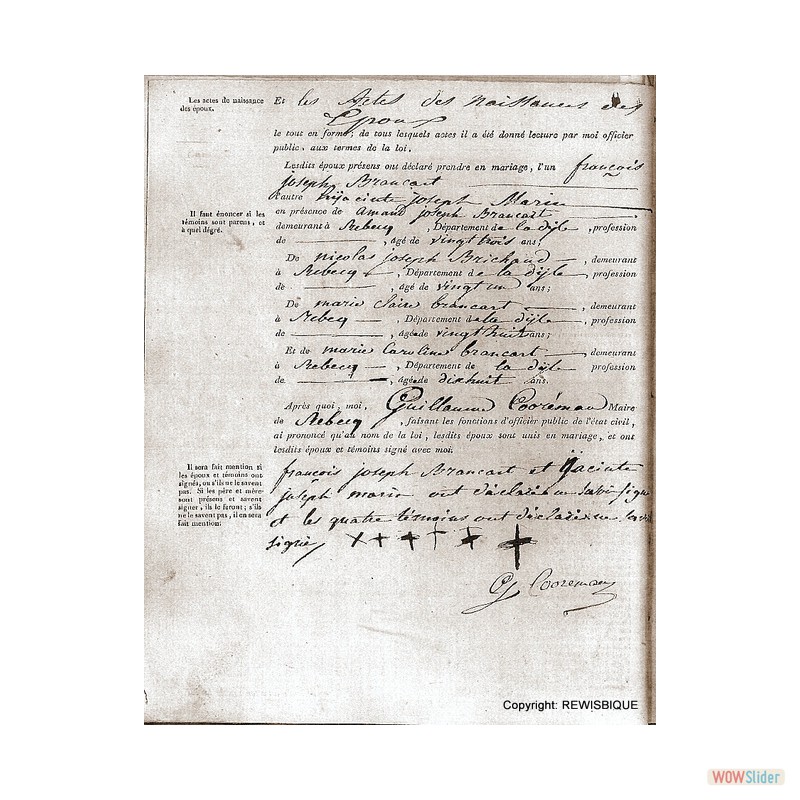 Les actes de naissance
des époux.
Et les Actes des naissances des
Epoux
le tout en forme; de tous lesquels actes il a été donné lecture par moi officier
public, aux termes de la loi.
Lesdits époux présens ont déclaré prendre en mariage, l'un françois
joseph Brancart
l'autre hÿacinte joseph Marin
Il faut énoncer si les
témoins sont parens, et
à quel dégré.
en présence de amand joseph Brancart
demeurant à Rebecq, Département de la dijle, profession
de, agé de vingt trois ans;
De nicolas joseph Brichaud, demeurant
à Rebecq, Département de la dijle, profession
de, agé de vingt un ans;
De marie claire brancart, demeurant
à Rebecq, Département de la dijle, profession
de, agée de vingt huit ans;
Et de marie Caroline brancart demeurant
à Rebecq, Département de la dijle profession
de, agée de dixhuit ans.
Après quoi, moi, Guillaume Cooréman Maire
de Rebecq, faisant les fonctions d'officier public de l'état civil,
ai prononcé qu'au nom de la loi, lesdits époux sont unis en mariage, et ont
lesdits époux et témoins signé avec moi.
Il sera fait mention si
les époux et témoins ont
signés, ou s'ils ne le savent
pas. Si les père et mère
sont présens et savent
signer, ils le feront; s'ils
ne le savent pas, il en sera
fait mention.
françois joseph Brancart et hÿacinte
joseph marin ont déclaré ne savoir signer
et les quatre témoins ont déclaré ne
signer
G Cooreman
Copyright: REWISBIQUE
WOWSlider